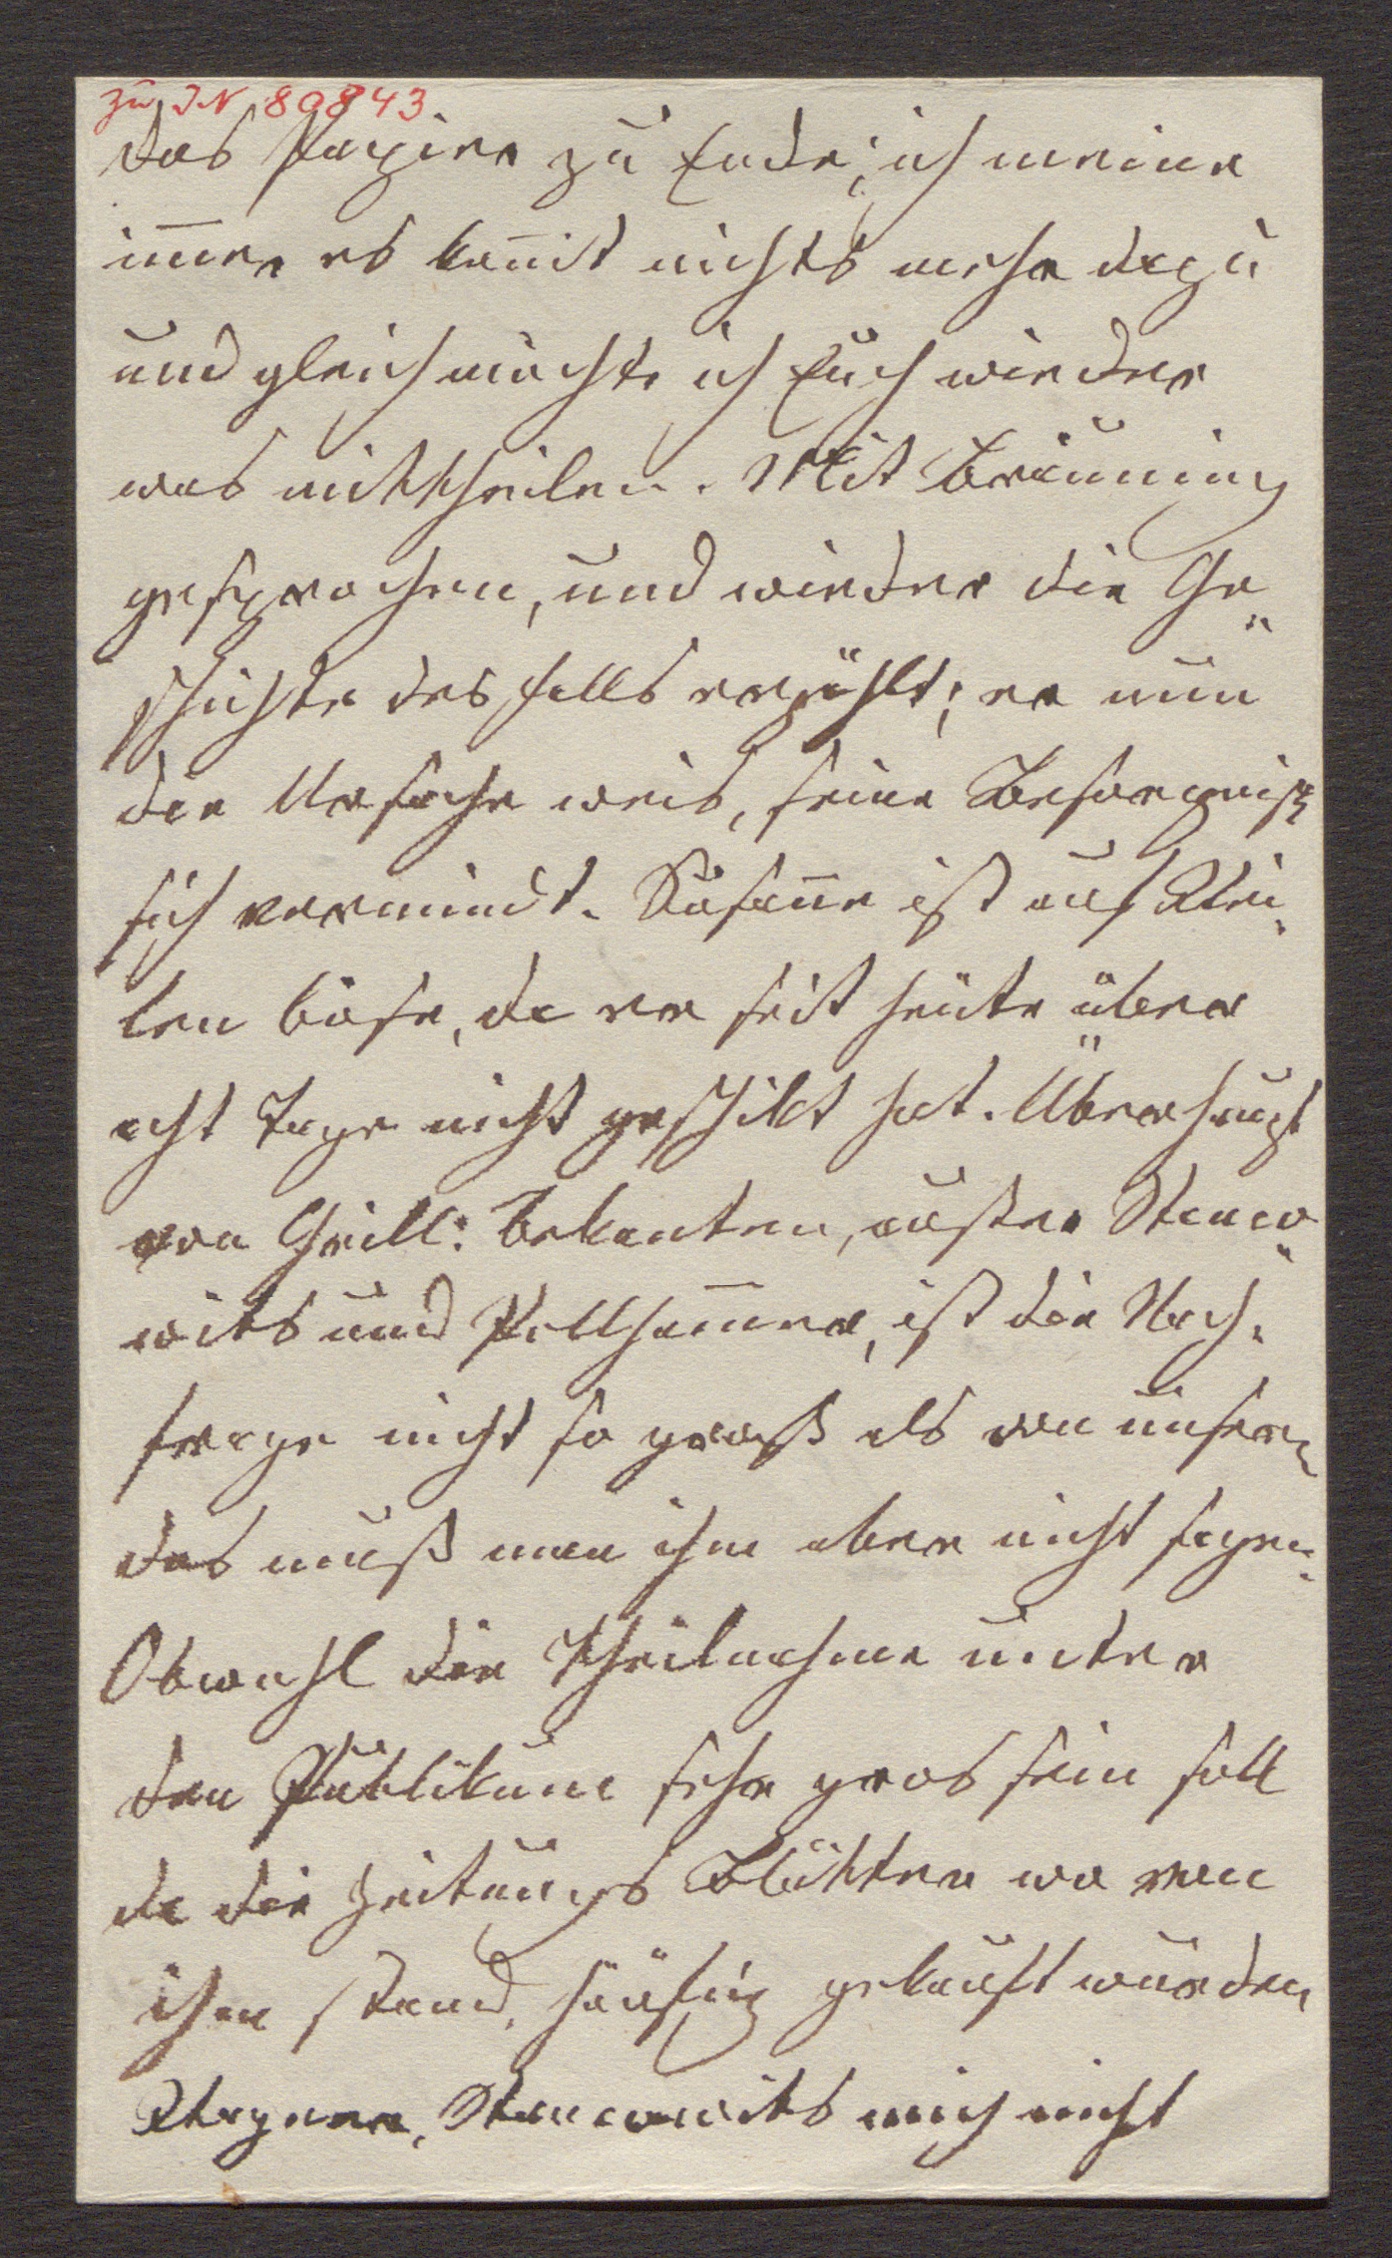 zu IN 89843
das Papier zu Ende, ich meine
im̄er es kom̄t nichts mehr dazu
und gleich möchte ich Euch wieder
was mittheilen. Mit Breuning
gesprochen, und wieder die Ge„
schichte des Falls erzählt; er nun
die Ursache weis, seine Besorgniß
sich vermindt. Susan̄e ist auf
len böse, da er seit heute über
acht Tage nicht geschikt hat. Überhaupt
von Grill: Bekanten, außer
und Pollham̄er, ist die Nach„
frage nicht so groß als von unsern
das muß man ihm aber nicht sagen.
Obwohl die Theilnahme unter
den Publikum sehr gros sein soll
da die Zeitungs Blätter wo von
ihm stand, häufig gekauft wurden
mich nicht